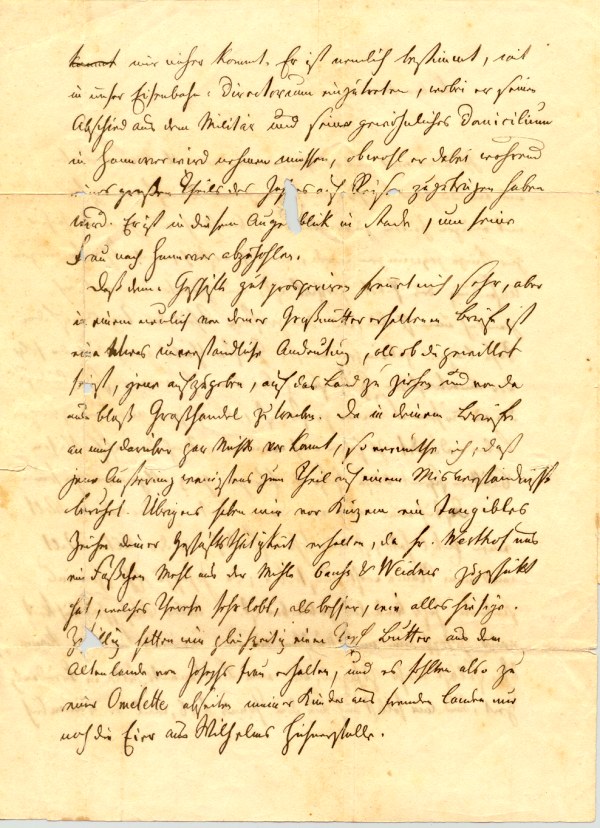 kommt mir näher kommt. Er ist nemlich bestimmt, mit
in unser Eisenbahn-Directorium einzutreten, wobei er seinen
Abschied aus dem Militär und seine gewöhnliches Domicilium
in Hannover wird nehmen müssen, obwohl er dabei während
eines großen Theils des Jahres auf Reisen zuzubringen haben
wird. Er ist in diesem Augenblick in Stade, um seine
Frau nach Hannover abzuholen.
Daß deine Geschäfte gut prosperiren freuet mich sehr, aber
in einem neulich von deiner Großmutter erhaltenen Briefe ist
eine etwas unverständliche Andeutung, als ob du gewillet
seist, jene aufzugeben, auf das Land zu ziehen und von da
aus bloß Großhandel zu treiben. Da in deinem Briefe
an mich darüber gar Nichts vor kömt, so vermuthe ich, daß
jene Äußerung wenigstens zum Theil auf einem Misverständnisse
beruhet. Übrigens haben wir vor Kurzem ein tangibles
Zeichen deiner Geschäftsthätigkeit erhalten, da Hr. Westhof uns
ein Fäßchen Mehl aus der Mühle & Weidner zugeschickt
hat, welches Therese sehr lobt, als besser, wie alles hiesige.
Zufällig hatten wir gleichzeitig einen Topf Butter aus dem
Altenlande von Josephs Frau erhalten, und es fehlten also zu
einer Omelette abseiten meiner Kinder aus fremden Landen nur
noch die Eier aus Wilhelms Hühnerstalle.